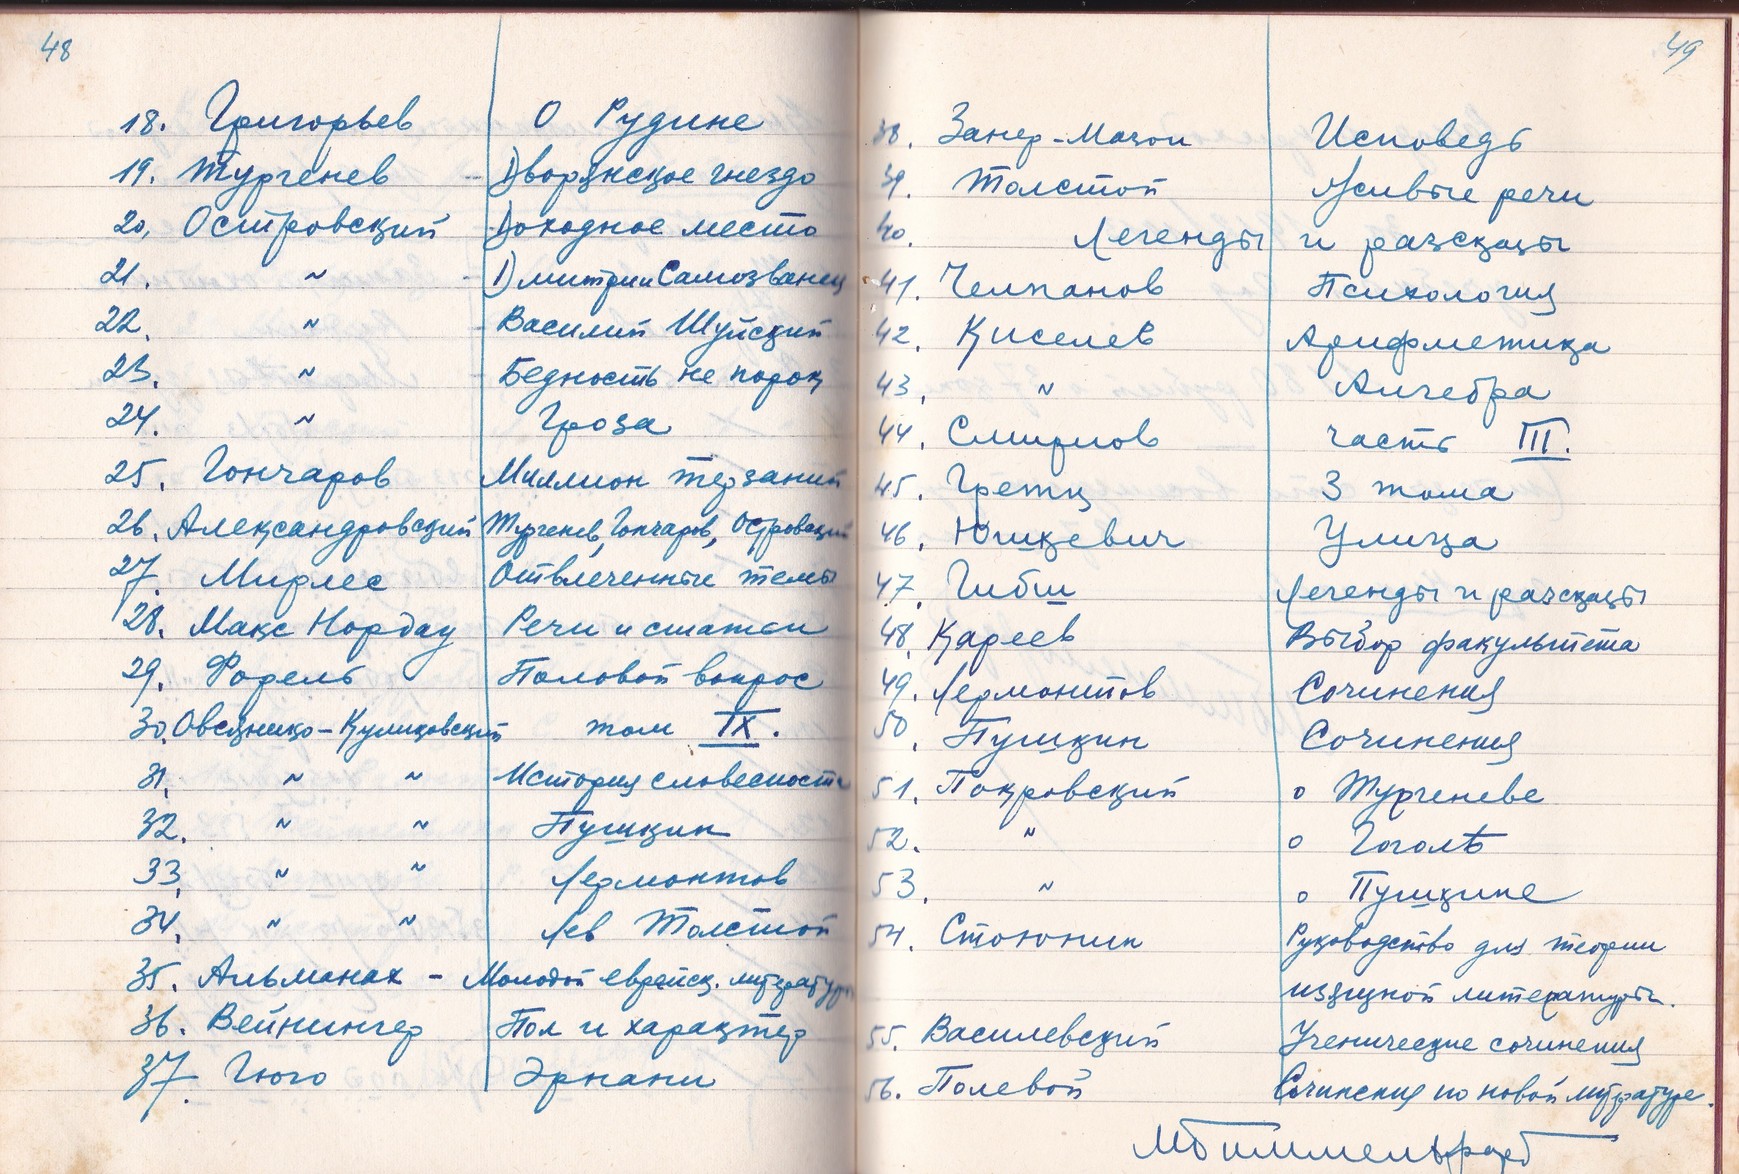 48
18. Григорьев О Рудине
19. Тургенев - Дворянское гнездо
20. Островский - Доходное место
21. " - Дмитрий Самозванец
22. " - Василий Шуйский
23. " - Бедность не порок
24. " Гроза
25. Гончаров Миллион терзаний
26. Александровский Тургенев, Гончаров, Островский
27. Мирлес Отвлеченные темы
28. Макс Нордау Речи и статьи
29. Форель Половой вопрос
30. Овсянико-Куликовский том IX.
31. " " История словесности
32. " " Пушкин
33. " " Лермонтов
34. " " Лев Толстой
35. Альманах - Молодой еврейск. литературы
36. Вейнингер Пол и характер
37. Гюго Эрнани
49
38. Захер-Мазох Исповедь
39. Толстой Живые речи
40. Легенды и разсказы
41. Челпанов Психология
42. Киселев Арифметика
43. " Алгебра
44. Смирнов часть III.
45. Гретц 3 тома
46. Юшкевич Улица
47. Легенды и разсказы
48. Кареев Выбор факультета
49. Лермонтов Сочинения
50. Пушкин Сочинения
51. Покровский о Тургеневе
52. " о Гоголѣ
53. " о Пушкине
54. Стоюнин Руководство для теории
изящной литературы.
55. Василевский Ученические сочинения
56. Полевой Сочинения по новой литратуре.